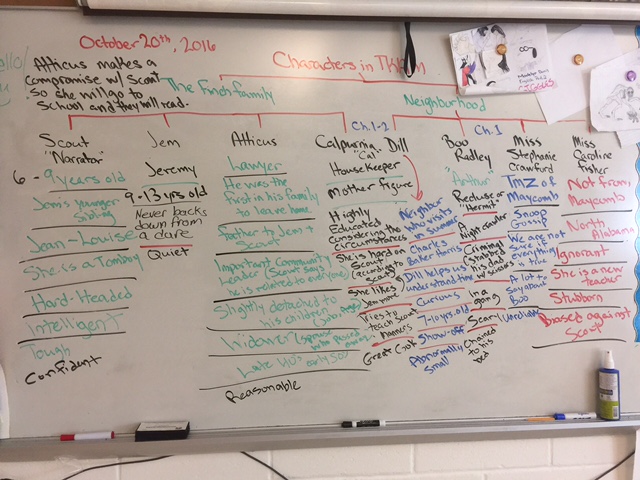 October 20th, 2016
Atticus makes a
compromise w/ Scout
so she will go to
school and they will read.
Characters in TKAM
The Finch family
Neighborhood
Scout
"Narrator"
6 - 9 years old
Jem's younger
sibling
Jean-Louise
She is a Tomboy
Hard-Headed
Intelligent
Tough
Confident
Jem
Jeremy
9-13 yrs old
Never backs
down from
a dare
Quiet
Atticus
Lawyer
He was the
first in his family
to leave home
Father to Jem +
Scout
Important Community
Leader (Scout says
he is related to everyone)
Slightly detached to
his children
Widower
Late 40's early 50s
Reasonable
Calpurnia
"Cal"
Housekeeper
Mother figure
Highly
Educated
considering the
circumstances
She is hard on
Scout
(according to
Scout)
She likes
Jem more
Tries to
teach Scout
manners
Great Cook
Ch.1-2
Dill
Neighbor
who visits
in summer
Charles
Baker Harris
Dill helps us
understand time
Curious
7-10 yrs. old
Show-off
Abnormally
Small
Boo
Radley
"Arthur"
Recluse or
"Hermit"
Night crawler
Criminal
(stabbed
his dad
w/ scissors)
in a
gang
Scary
Chained
to his
bed
Ch.1
Miss
Stephanie
Crawford
TMZ of
Maycomb
Snoop
Gossip
We are not
sure if
everything
is true
A lot to
say about
Boo
Unreliable
Miss
Caroline
Fisher
Not from
Maycomb
North
Alabama
Ignorant
She is a new
teacher
Stubborn
Biased against
Scout